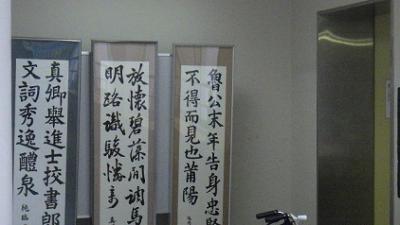 魯公末年告身忠賢
不得而見也莆陽
放懷碧藻間詩馬
明路識駿
真卿舉進士挍書郎
文詞秀逸醴泉